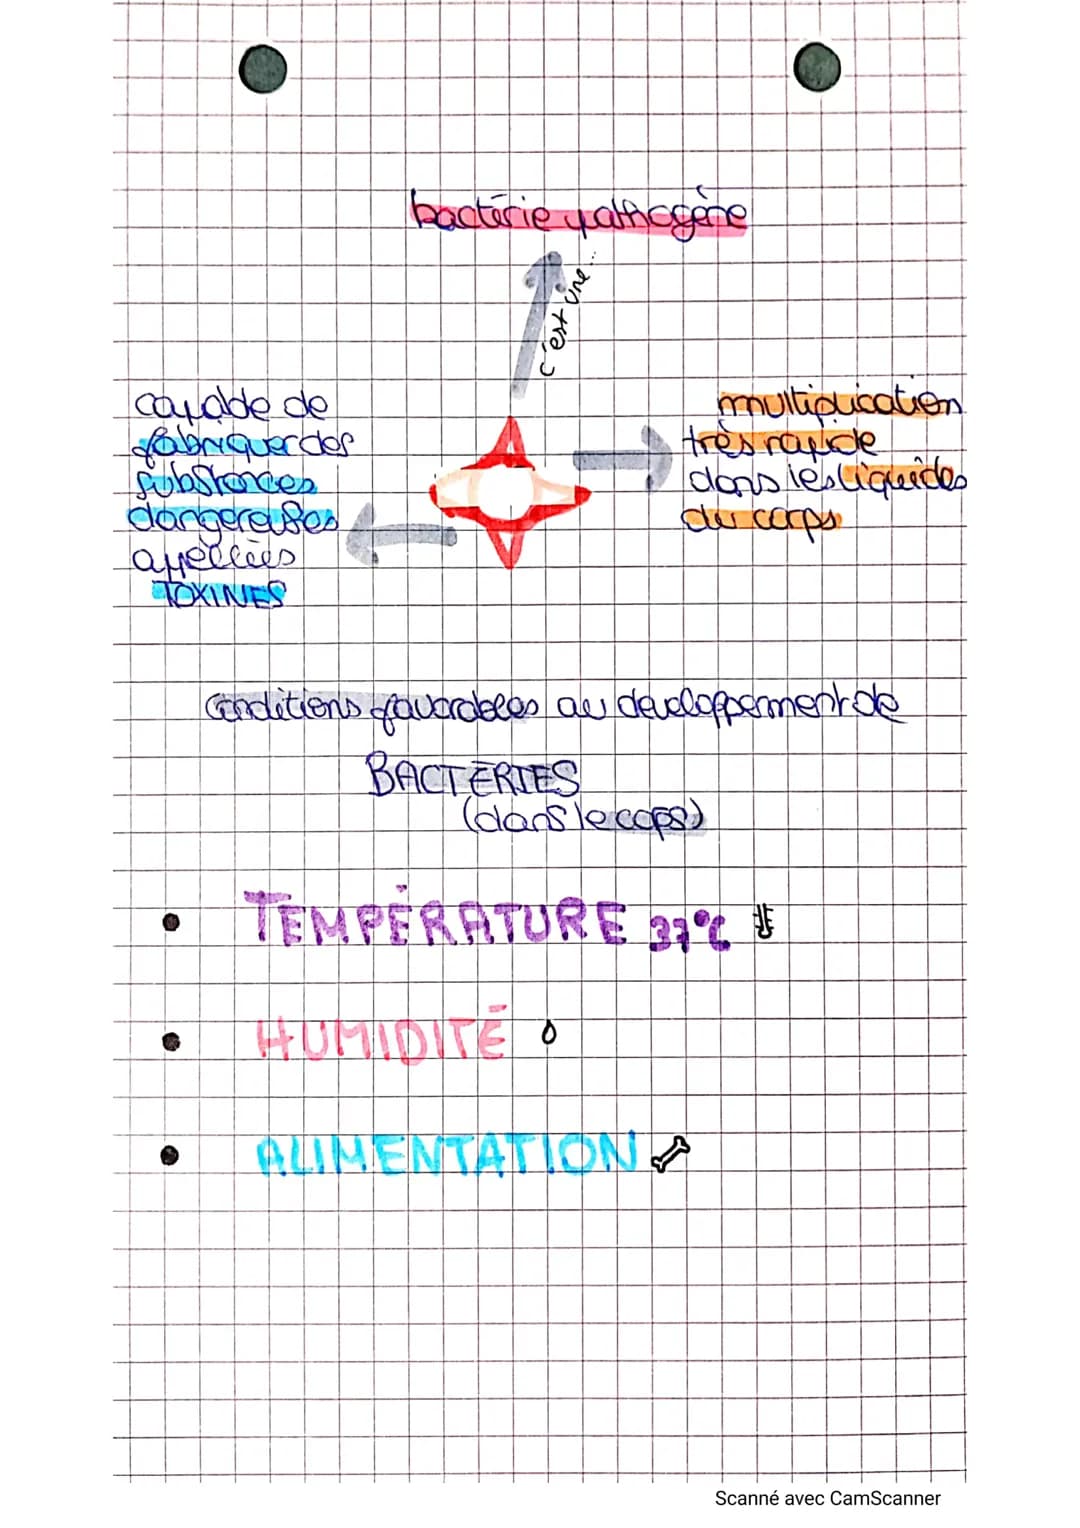 bactérie pathogène
c'est une...
capable de
fabriquer des
substances
dangereuses
appelées
TOXINES
multiplication
très rapide
dans les liquides
du corps
Conditions favorables au développement de
BACTÉRIES
(dans le corps)
TEMPÉRATURE 37°C
HUMIDITÉ
ALIMENTATION
Scanné avec CamScanner